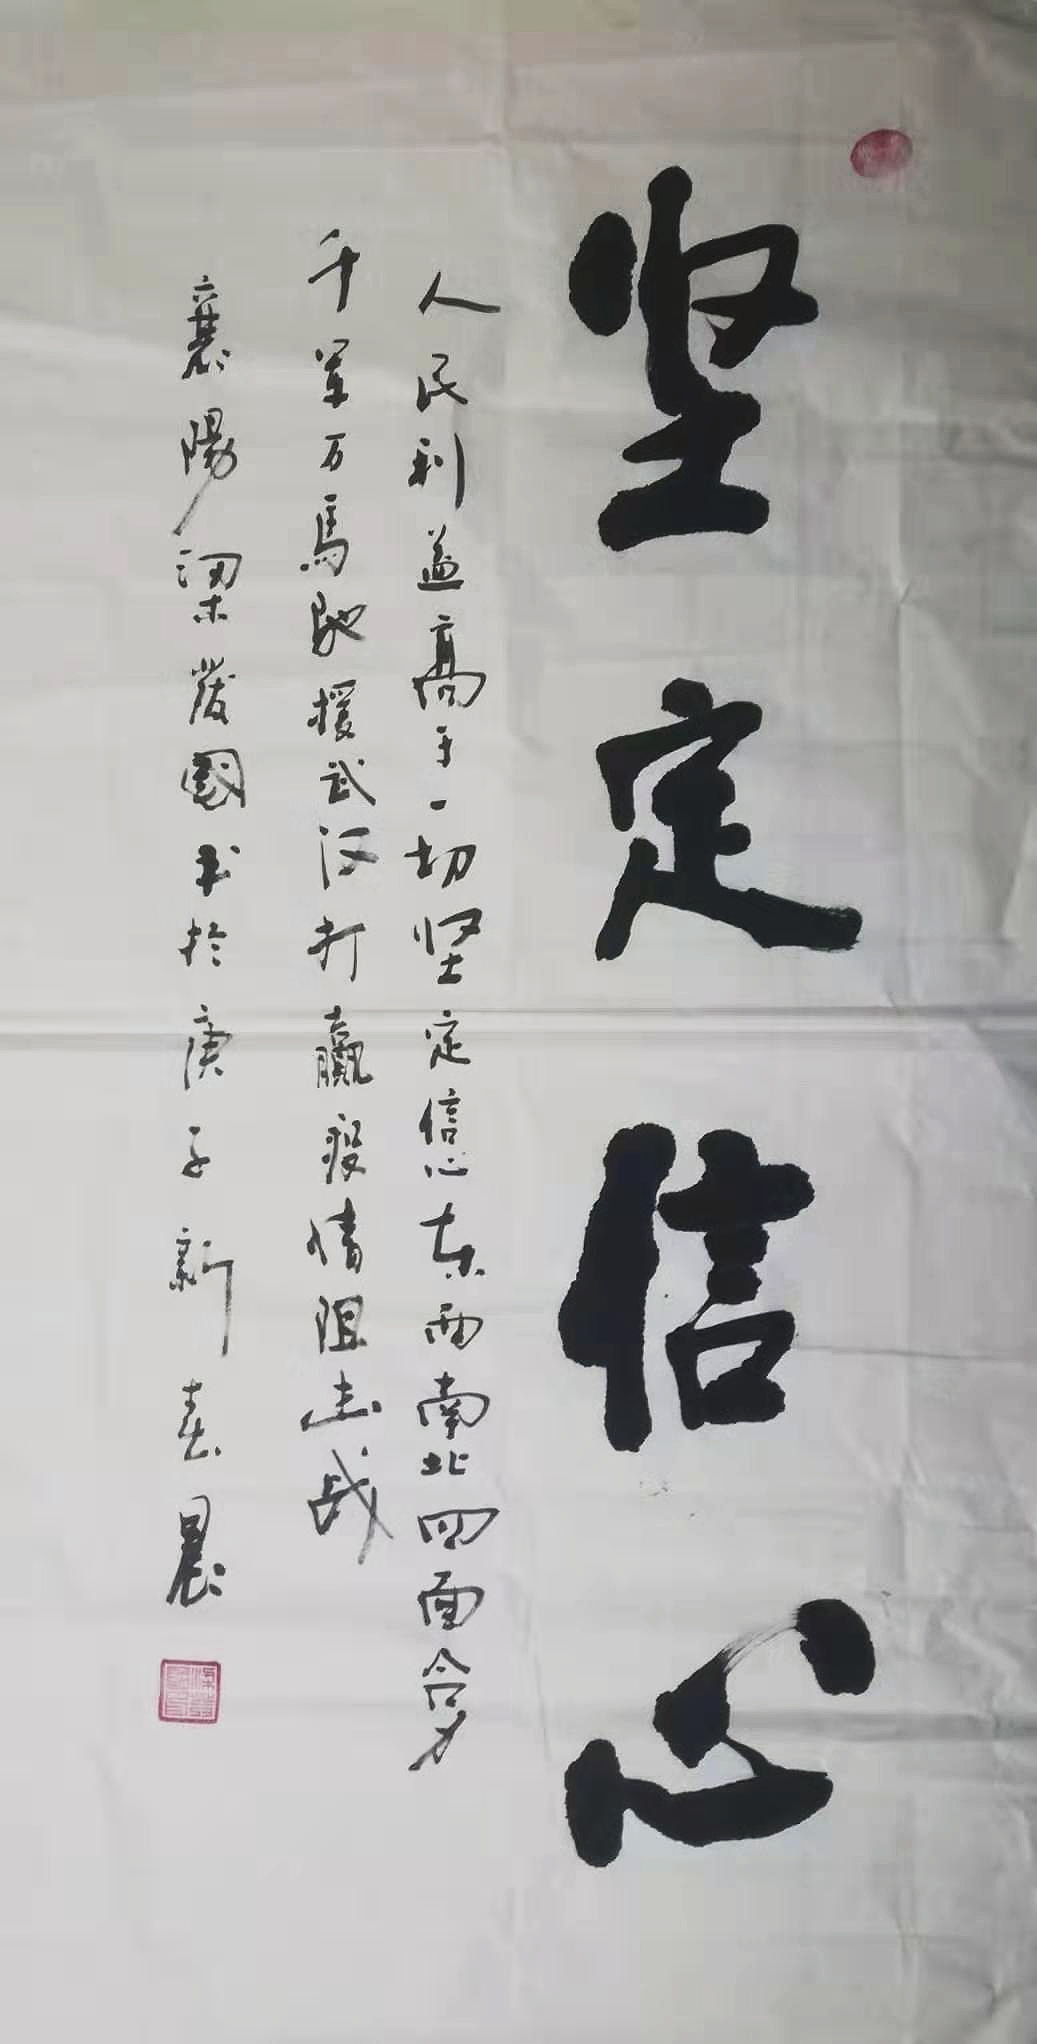 坚定信心
人民利益高于一切坚定信心东西南北四面合力
千军万馬馳援武汉打赢疫情阻击战
襄陽梁發國书於庚子新春晨